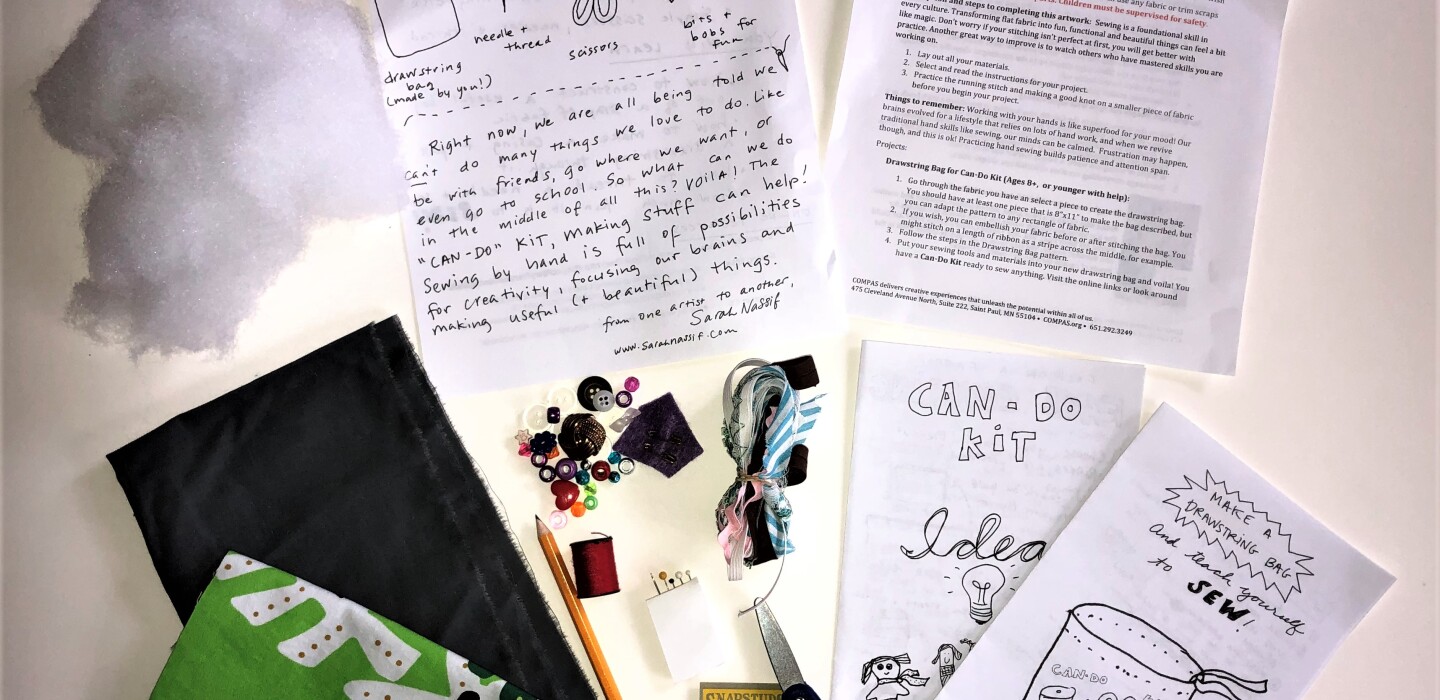 needle +
thread
scissors
bits +
bobs for
fun
drawstring
bag
(made by you!)
Right now, we are all being told we
can't do many things we love to do. Like
be with friends, go where we want, or
even go to school. So what can we do
in the middle of all this? VOILA! The
"CAN-DO" KIT, making stuff can help!
Sewing by hand is full of possibilities
for creativity, focusing our brains and
making useful (+ beautiful) things.
from one artist to another,
Sarah Nassif
www.sarahnassif.com
use any fabric or trim scraps
Children must be supervised for safety.
and steps to completing this artwork: Sewing is a foundational skill in
every culture. Transforming flat fabric into fun, functional and beautiful things can feel a bit
like magic. Don't worry if your stitching isn't perfect at first, you will get better with
practice. Another great way to improve is to watch others who have mastered skills you are
working on.
1. Lay out all your materials.
2. Select and read the instructions for your project.
3. Practice the running stitch and making a good knot on a smaller piece of fabric
before you begin your project.
Things to remember: Working with your hands is like superfood for your mood! Our
brains evolved for a lifestyle that relies on lots of hand work, and when we revive
traditional hand skills like sewing, our minds can be calmed. Frustration may happen,
though, and this is ok! Practicing hand sewing builds patience and attention span.
Projects:
Drawstring Bag for Can-Do Kit (Ages 8+, or younger with help):
1. Go through the fabric you have an select a piece to create the drawstring bag.
You should have at least one piece that is 8"x11" to make the bag described, but
you can adapt the pattern to any rectangle of fabric.
2. If you wish, you can embellish your fabric before or after stitching the bag. You
might stitch on a length of ribbon as a stripe across the middle, for example.
3. Follow the steps in the Drawstring Bag pattern.
4. Put your sewing tools and materials into your new drawstring bag and voila! You
have a Can-Do Kit ready to sew anything. Visit the online links or look around
COMPAS delivers creative experiences that unleash the potential within all of us.
475 Cleveland Avenue North, Suite 222, Saint Paul, MN 55104 • COMPAS.org • 651.292.3249
CAN-DO
KiT
Idea
MAKE A
DRAWSTRING BAG
and teach yourself
to SEW!
CAN-DO